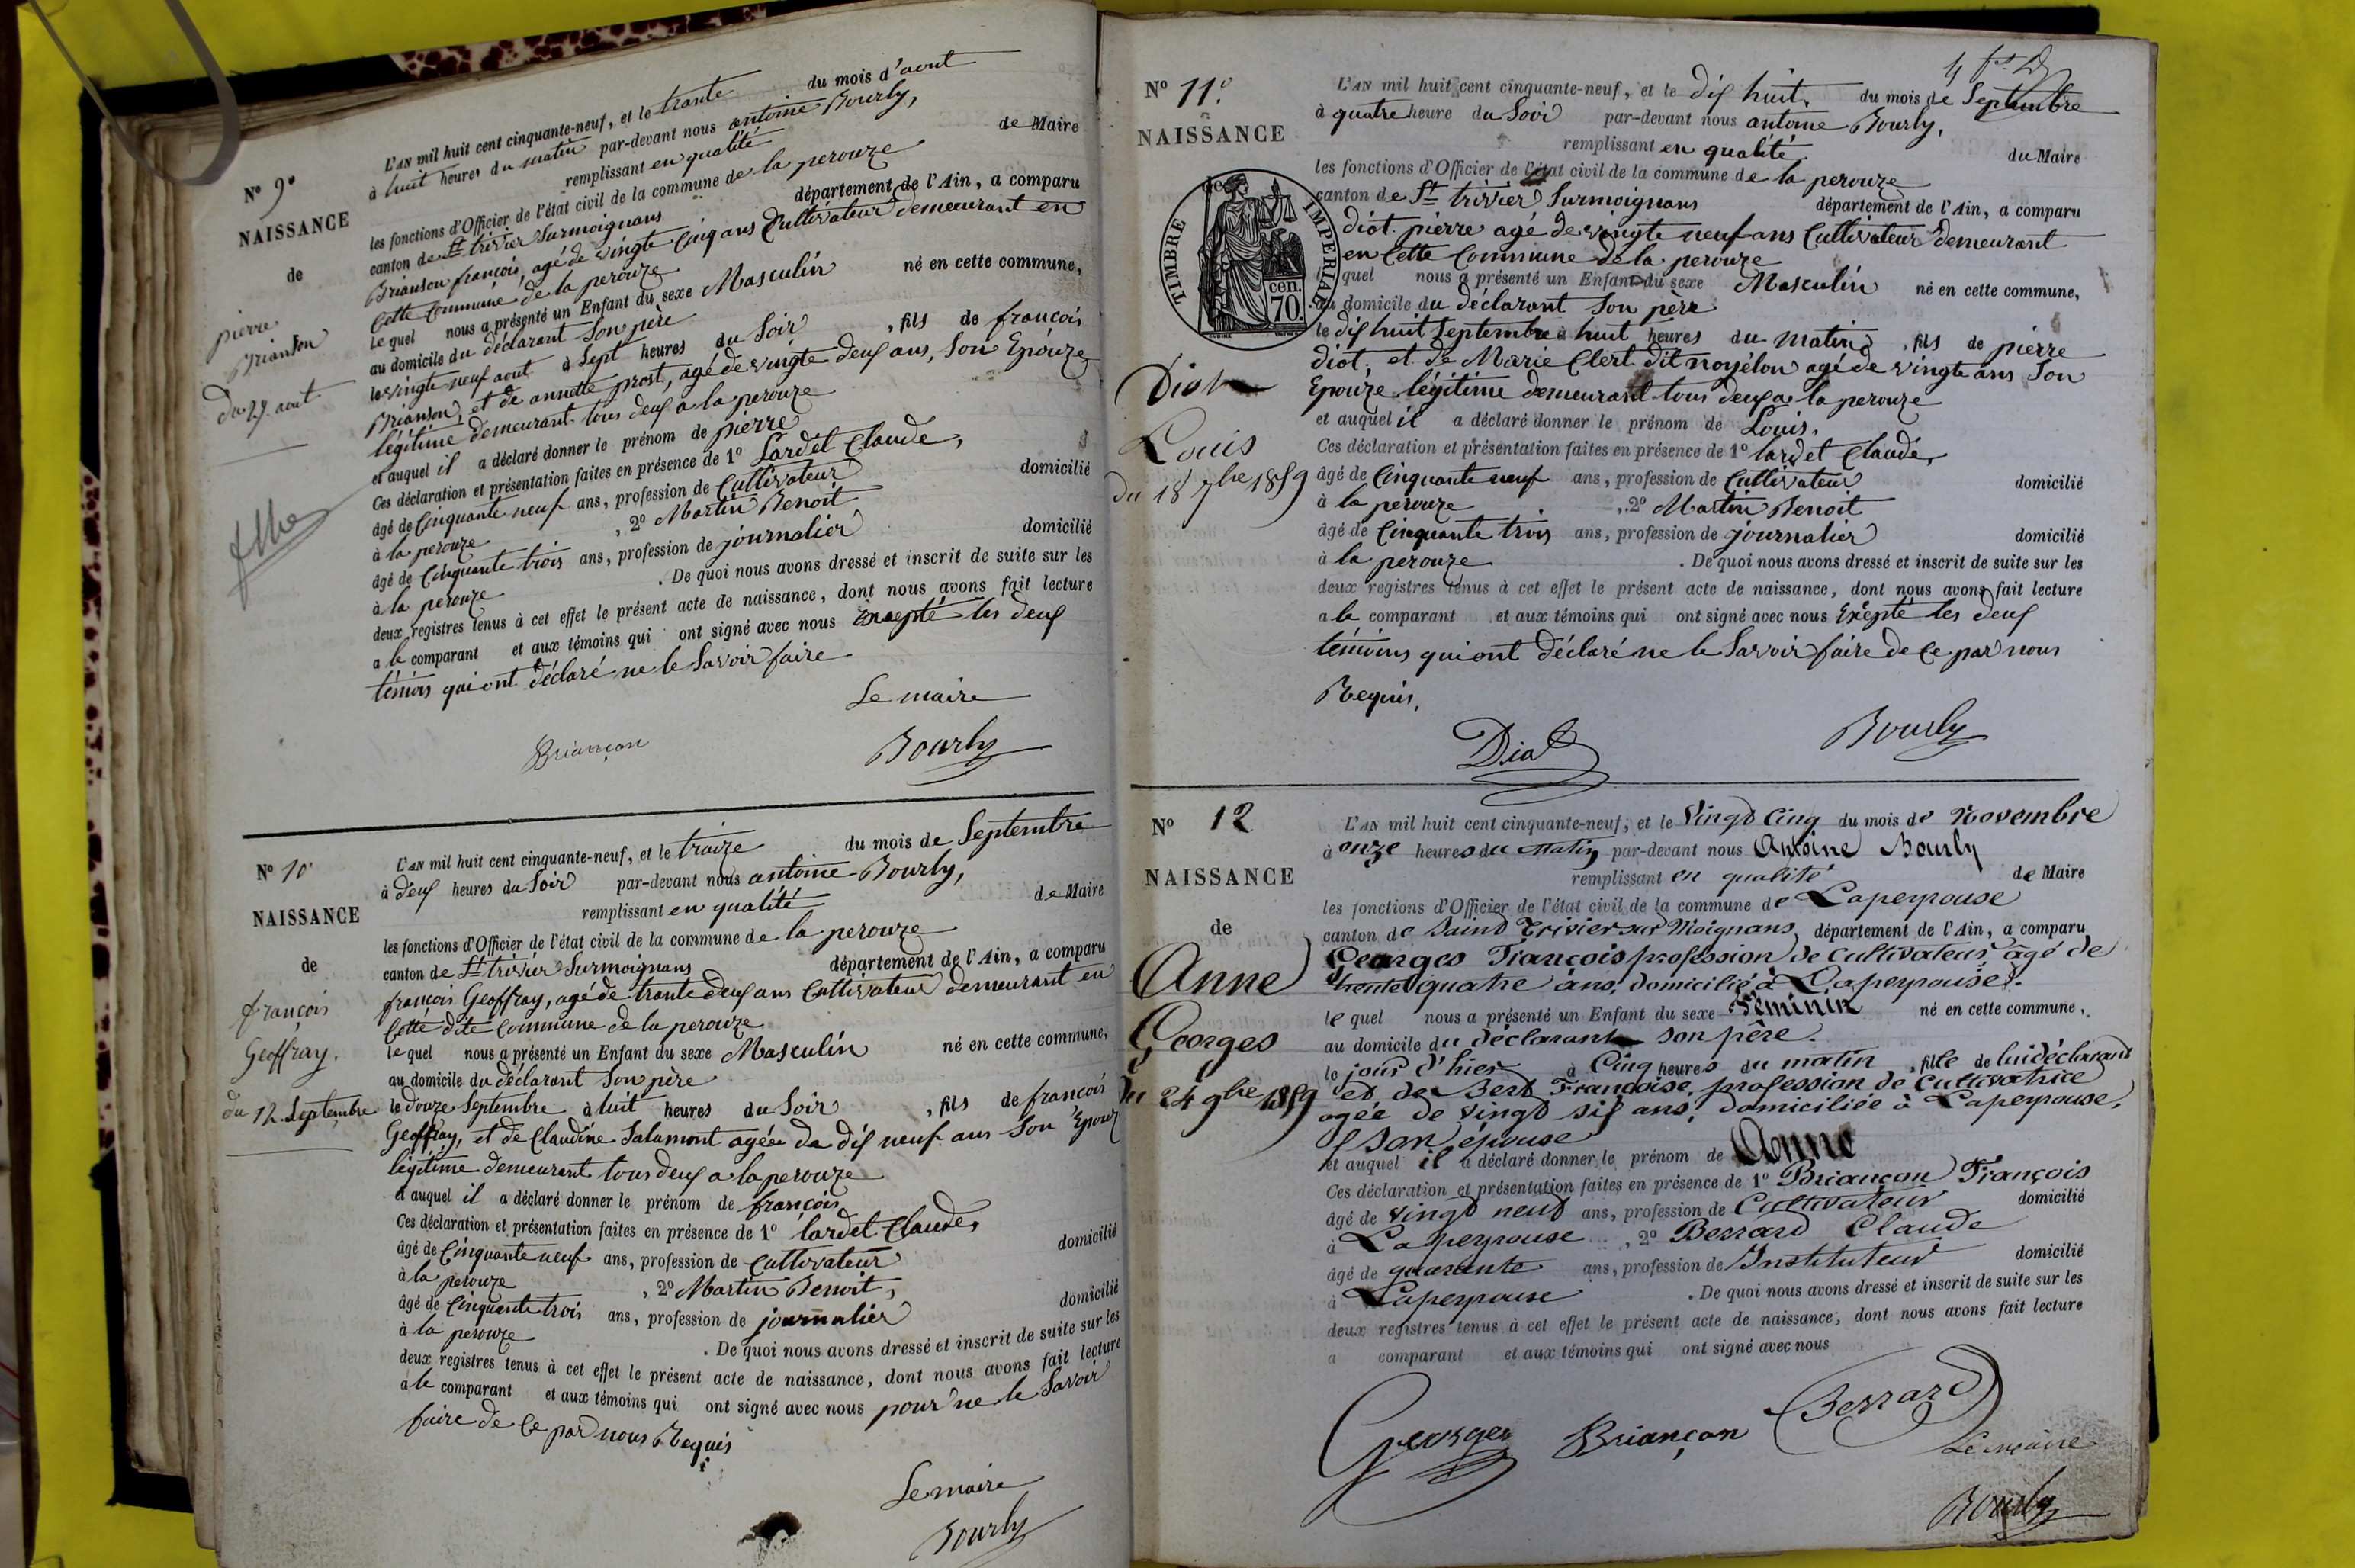 N° 9°
NAISSANCE
de
pierre
Brianson
du 29 aout
L'AN mil huit cent cinquante-neuf, et le trante du mois d'aout
à huit heures du matin par-devant nous antoine Bourly,
remplissant en qualité de Maire
les fonctions d'Officier de l'état civil de la commune de la perouze
canton de St trivier Surmoignans département de l'Ain, a comparu
Brianson françois, agé de vingte cinq ans Cultivateur demeurant en
Cette Commune de la perouze
lequel nous a présenté un Enfant du sexe Masculin né en cette commune,
au domicile du déclarant Son père
le vingte neuf aout à Sept heures du Soir , fils de françois
Brianson, et de annette prost, agé de vingte deuf ans, Son Epouze
légitime demeurant tous deuf a la perouze
et auquel il a déclaré donner le prénom de pierre
Ces déclaration et présentation faites en présence de 1° Lardet Claude,
âgé de Cinquante neuf ans, profession de Cultivateur domicilié
à la perouze , 2° Martin Benoit
âgé de Cinquante trois ans, profession de journalier domicilié
à la perouze . De quoi nous avons dressé et inscrit de suite sur les
deux registres tenus à cet effet le présent acte de naissance, dont nous avons fait lecture
a le comparant et aux témoins qui ont signé avec nous Excepté les deuf
témoins qui ont déclaré ne le Savoir faire
Le maire
Briançon Bourly
N° 10°
NAISSANCE
de
françois
Geoffray.
du 12 Septembre
L'AN mil huit cent cinquante-neuf, et le traize du mois de Septembre
à deuf heures du Soir par-devant nous antoine Bourly,
remplissant en qualité de Maire
les fonctions d'Officier de l'état civil de la commune de la perouze
canton de St trivier Surmoignans département de l'Ain, a comparu
françois Geoffray, agé de trante deuf ans Cultivateur demeurant en
Cette dite Commune de la perouze
lequel nous a présenté un Enfant du sexe Masculin né en cette commune,
au domicile du déclarant Son père
le douze Septembre à luit heures du Soir , fils de françois
Geoffray, et de Claudine Salamont agée de dif neuf ans Son Epouz
légitime demeurant tous deuf a la perouze
et auquel il a déclaré donner le prénom de françois
Ces déclaration et présentation faites en présence de 1° lardet Claude,
âgé de Cinquante neuf ans, profession de Cultivateur domicilié
à la perouze , 2° Martin Benoit,
âgé de Cinquante trois ans, profession de journalier domicilié
à la perouze . De quoi nous avons dressé et inscrit de suite sur les
deux registres tenus à cet effet le présent acte de naissance, dont nous avons fait lecture
a le comparant et aux témoins qui ont signé avec nous pour ne le Savoir
faire de Ce par nous Requis
Le maire
Bourly
N° 11°
NAISSANCE
de
TIMBRE IMPERIAL
70 cen.
Diot
Louis
du 18 7bre 1859
L'AN mil huit cent cinquante-neuf, et le dif huit, du mois de Septembre
à quatre heure du Soir par-devant nous antoine Bourly,
remplissant en qualité du Maire
les fonctions d'Officier de l'état civil de la commune de la perouze
canton de St trivier Surmoignans département de l'Ain, a comparu
diot pierre agé de vingte neuf ans Cultivateur demeurant
en Cette Commune de la perouze
lequel nous a présenté un Enfant du sexe Masculin né en cette commune,
au domicile du déclarant Son père
le dif huit Septembre à huit heures du matin , fils de pierre
diot, et de Marie Clert dit noyélou agé de vingte ans Son
Epouze légitime demeurant tous deuf a la perouze
et auquel il a déclaré donner le prénom de Louis.
Ces déclaration et présentation faites en présence de 1° lardet Claude,
âgé de Cinquante neuf ans, profession de Cultivateur domicilié
à la perouze , 2° Martin Benoit
âgé de Cinquante trois ans, profession de journalier domicilié
à la perouze . De quoi nous avons dressé et inscrit de suite sur les
deux registres tenus à cet effet le présent acte de naissance, dont nous avons fait lecture
a le comparant et aux témoins qui ont signé avec nous Excepté les deuf
témoins qui ont déclaré ne le Savoir faire de Ce par nous
Requis,
Diot Bourly
N° 12
NAISSANCE
de
Anne
Georges
du 24 9bre 1859
L'AN mil huit cent cinquante-neuf, et le Vingt Cinq du mois de Novembre
à onze heures du matin par-devant nous Antoine Bourly
remplissant en qualité de Maire
les fonctions d'Officier de l'état civil de la commune de Lapeyrouse
canton de Saint Trivier sur Moignans département de l'Ain, a comparu
Georges François profession de Cultivateur âgé de
trente quatre ans, domicilié à Lapeyrouse.
lequel nous a présenté un Enfant du sexe Féminin né en cette commune,
au domicile du déclarant son père.
le jour d'hier à Cinq heures du matin , fille de lui déclarant
et de Bert Françoise, profession de Cultivatrice
agée de Vingt sif ans, domiciliée à Lapeyrouse,
son épouse
et auquel il a déclaré donner le prénom de Anne
Ces déclaration et présentation faites en présence de 1° Briançon François
âgé de vingt neuf ans, profession de Cultivateur domicilié
à Lapeyrouse , 2° Berrard Claude
âgé de quarante ans, profession de Instituteur domicilié
à Lapeyrouse . De quoi nous avons dressé et inscrit de suite sur les
deux registres tenus à cet effet le présent acte de naissance, dont nous avons fait lecture
a comparant et aux témoins qui ont signé avec nous
Georges Briançon Berrard
Le maire
Bourly